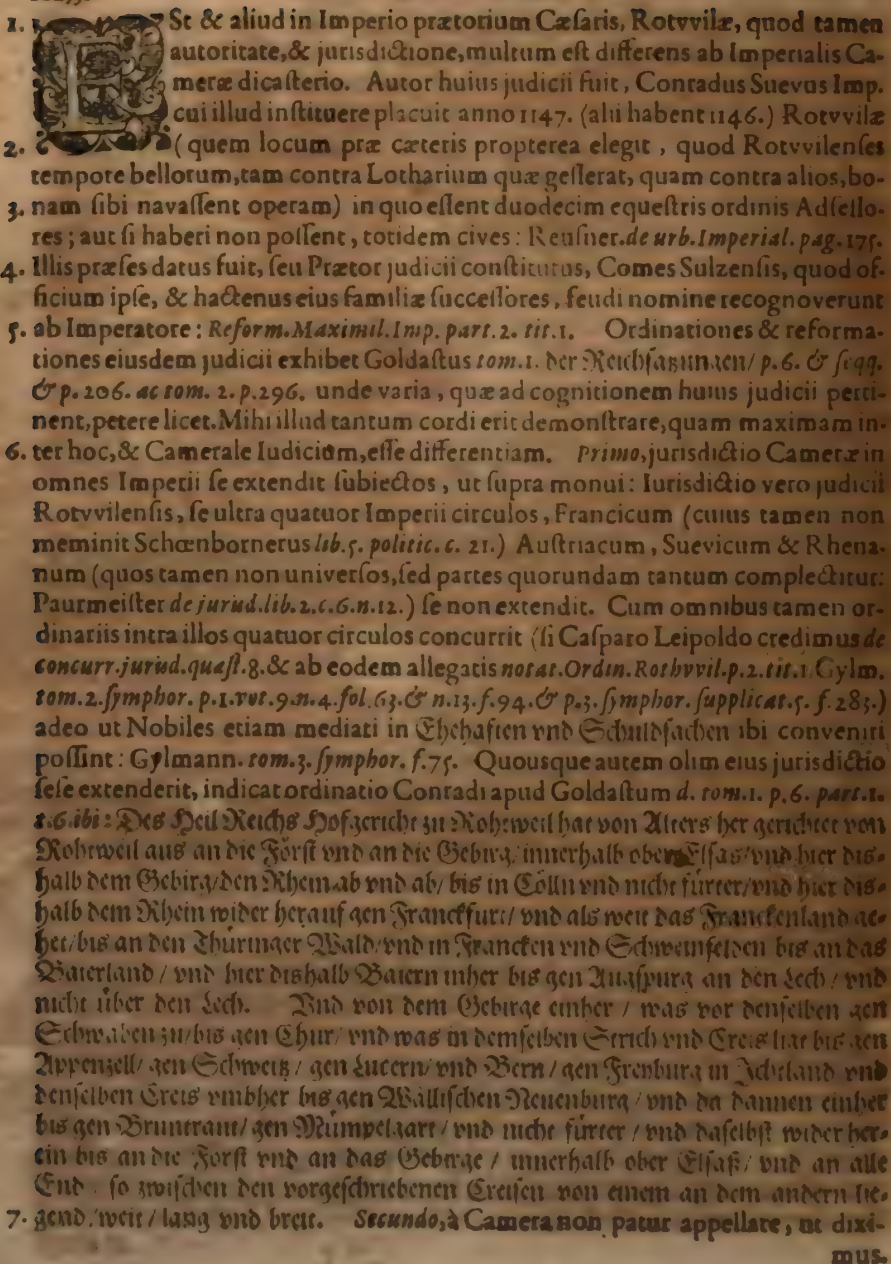 1. ESt & aliud in Imperio prætorium Cæsaris, Rotvvilæ, quod tamen
autoritate, & jurisdictione, multum est differens ab Imperialis Ca-
meræ dicasterio. Autor huius judicii fuit, Conradus Suevus Imp.
cui illud instituere placuit anno 1147. (alii habent 1146.) Rotvvilæ
2. (quem locum præ cæteris propterea elegit, quod Rotvvilenses
tempore bellorum, tam contra Lotharium quæ gesserat, quam contra alios, bo-
3. nam sibi navassent operam) in quo essent duodecim equestris ordinis Adsesso-
res; aut si haberi non possent, totidem cives: Reusner. de urb. Imperial. pag. 175.
4. Illis præses datus fuit, seu Prætor judicii constitutus, Comes Sulzensis, quod of-
ficium ipse, & hactenus eius familiæ successores, feudi nomine recognoverunt
5. ab Imperatore: Reform. Maximil. Imp. part. 2. tit. 1. Ordinationes & reforma-
tiones eiusdem judicii exhibet Goldastus tom. 1. der Reichssatzungen/ p. 6. & seqq.
& p. 206. ac tom. 2. p. 296. unde varia, quæ ad cognitionem huius judicii perti-
nent, petere licet. Mihi illud tantum cordi erit demonstrare, quam maximam in-
6. ter hoc, & Camerale Iudicium, esse differentiam. Primo, jurisdictio Cameræ in
omnes Imperii se extendit subiectos, ut supra monui: Iurisdictio vero judicii
Rotvvilensis, se ultra quatuor Imperii circulos, Francicum (cuius tamen non
meminit Schœnbornerus lib. 5. politic. c. 21.) Austriacum, Suevicum & Rhena-
num (quos tamen non universos, sed partes quorundam tantum complectitur:
Paurmeister de jurisd. lib. 2. c. 6. n. 12.) se non extendit. Cum omnibus tamen or-
dinariis intra illos quatuor circulos concurrit (si Casparo Leipoldo credimus de
concurr. jurisd. quæst. 8. & ab eodem allegatis notat. Ordin. Rothvvil. p. 2. tit. 1 Gylm.
tom. 2. symphor. p. 1. vot. 9. n. 4. fol. 63. & n. 13. f. 94. & p. 3. symphor. supplicat. 5. f. 283.)
adeo ut Nobiles etiam mediati in Ehehaften vnd Schuldsachen ibi conveniri
possint: Gylmann. tom. 3. symphor. f. 75. Quousque autem olim eius jurisdictio
sese extenderit, indicat ordinatio Conradi apud Goldastum d. tom. 1. p. 6. part. 1.
t. 6. ibi: Des Heil Reichs Hofgericht zu Rohtweil hat von Alters her gerichtet von
Rohtweil aus an die Först vnd an die Gebirg/ innerhalb ober Elsas/ vnd hier dis-
halb dem Gebirg/ den Rhein ab vnd ab/ bis in Cölln vnd nicht fürter/ vnd hier dis-
halb dem Rhein wider herauf gen Franckfurt/ vnd als weit das Franckenland ge-
het/ bis an den Thüringer Wald/ vnd in Francken vnd Schweinfelden bis an das
Baierland / vnd hier dishalb Baiern inher bis gen Augspurg an den Lech / vnd
nicht über den Lech. Vnd von dem Gebirge einher / was vor denselben gen
Schwaben zu/ bis gen Chur/ vnd was in demselben Strich vnd Creis liat bis gen
Appenzell/ gen Schweitz / gen Lucern/ vnd Bern / gen Freyburg in Jchtland vnd
denselben Creis vmbher bis gen Wällischen Neuenburg / vnd da dannen einher
bis gen Bruneraut/ gen Mümpelgart / vnd nicht fürter / vnd daselbst wider her-
ein bis an die Forst vnd an das Gebirge / innerhalb ober Elsaß/ vnd an alle
End so zwischen den vorgeschriebenen Creisen von einem an dem andern lie-
7. gend/ weit / lang vnd breit. Secundo, à Camera non patur appellare, ut dixi-
mus.